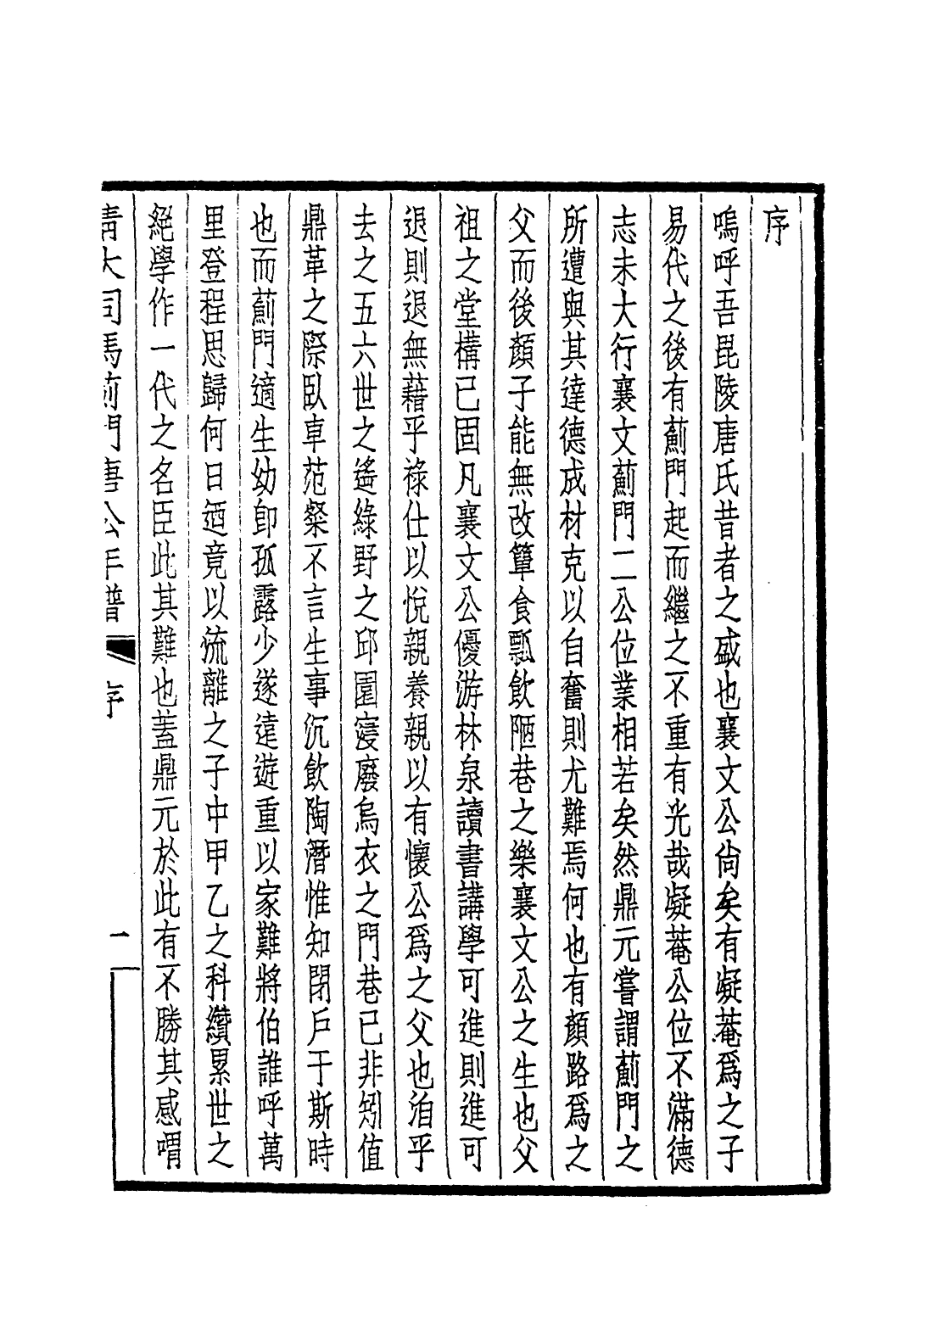 序
嗚呼吾毘陵唐氏昔者之盛也襄文公尙矣有凝菴爲之子
易代之後有薊門起而繼之不重有光哉凝菴公位不滿德
志未大行襄文薊門二公位業相若矣然鼎元嘗謂薊門之
所遭與其達德成材克以自奮則尤難焉何也有顏路爲之
父而後顏子能無改簞食瓢飮陋巷之樂襄文公之生也父
祖之堂構已固凡襄文公優游林泉讀書講學可進則進可
退則退無藉乎祿仕以悅親養親以有懷公爲之父也洎乎
去之五六世之遙綠野之邱園寖廢烏衣之門巷已非矧值
鼎革之際臥車范粲不言生事沉飮陶潛惟知閉戶于斯時
也而薊門適生幼卽孤露少遂遠遊重以家難將伯誰呼萬
里登程思歸何日迺竟以流離之子中甲乙之科纘累世之
絕學作一代之名臣此其難也蓋鼎元於此有不勝其感喟
淸大司馬薊門唐公年譜 序 一